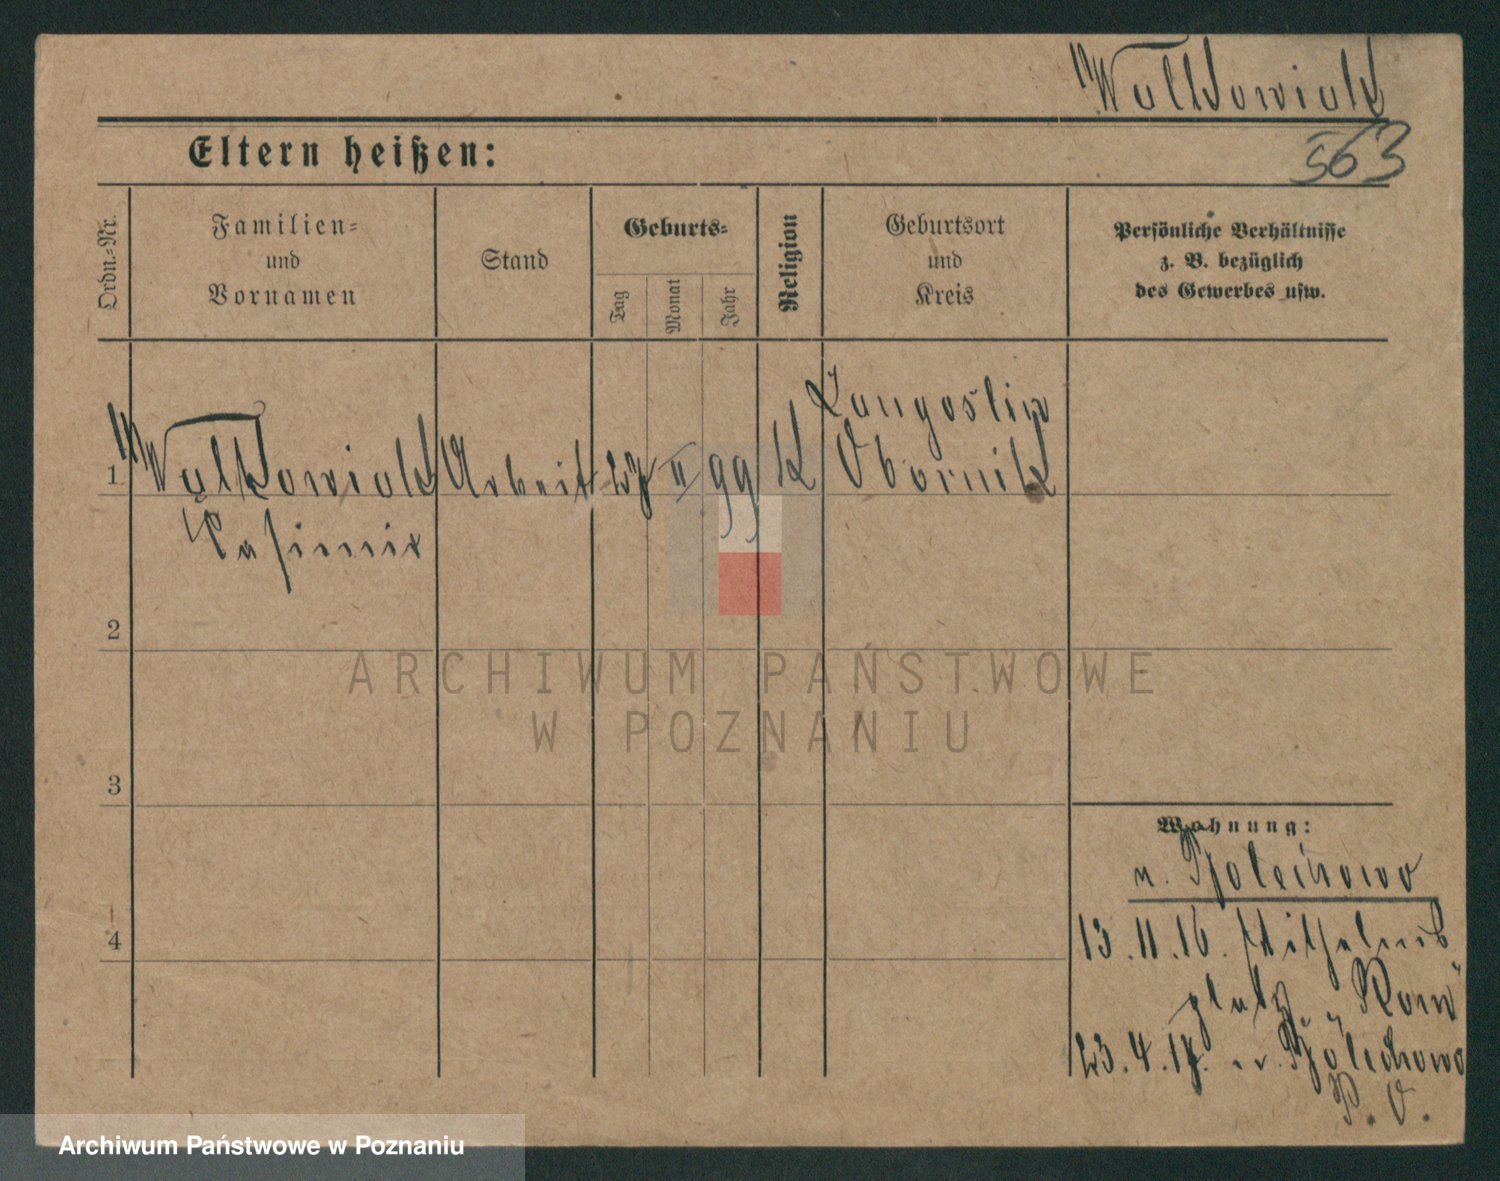 Walkowiak
563
Eltern heißen:
Ordn.-Nr.
Familien-
und
Vornamen
Stand
Geburts-
Tag
Monat
Jahr
Religion
Geburtsort
und
Kreis
Persönliche Verhältnisse
z. B. bezüglich
des Gewerbes usw.
1
Walkowiak
Casimir
Arbeit
27
II
99
K
Langoslin
Obornik
2
3
4
Wohnung:
n. Bolechowo
13.11.16.
platz
23.4.17. n. Bolechowo
P. O.
ARCHIWUM PAŃSTWOWE
W POZNANIU
Archiwum Państwowe w Poznaniu